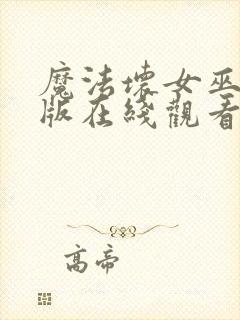 魔法壞女巫
版在綫觀看
高帝